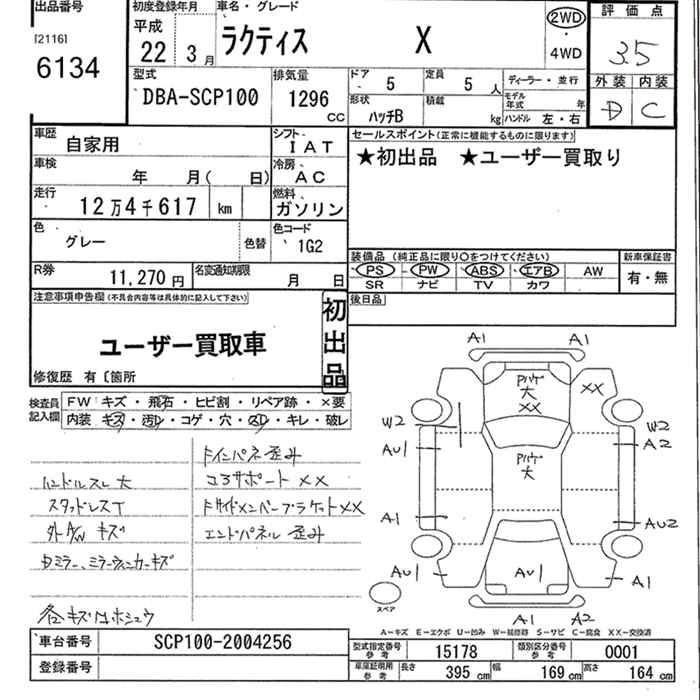 出品番号
[2116]
6134
初度登録年月
平成
22 3月
車名・グレード
ラクティス X
2WD
・
4WD
評価点
3.5
外装 内装
D C
型式
DBA-SCP100
排気量
1296
CC
ドア 5
定員 5 人
ディーラー・並行
形状 ハッチB
積載 kg
モデル年式 年
ハンドル 左・右
車歴 自家用
シフト IAT
車検 年 月( 日)
冷房 AC
走行 12万4千617 km
燃料 ガソリン
色 グレー
色替
色コード 1G2
R券 11,270円
名変通知期限 月 日
セールスポイント(正常に機能するものに限ります)
★初出品 ★ユーザー買取り
装備品 (純正品に限り○をつけてください)
新車保証書
PS PW ABS エアB AW
有・無
SR ナビ TV カワ
後日品
注意事項申告欄(不具合内容等は具体的に記入して下さい)
初出品
ユーザー買取車
修復歴 有〔箇所
検査員記入欄
FW キズ・飛石・ヒビ割・リペア跡・×要
内装 キズ・汚レ・コゲ・穴・凹レ・キレ・破レ
ハンドルスレ大
スタッドレスT
外A/W キズ
Dミラー、ミラーウィンカーキズ
各キズ凹ホシュウ
ドインパネ歪み
コアサポート XX
ドサイドメンバーブラケットXX
エンドパネル 歪み
A1 A1
大
XX
XX
W2 W2
AU1 A2
大
A1 AU2
AU1 AU1 A1
スペア
A1 A2
A-キズ E-エクボ U-凹み W-補修跡 S-サビ C-腐食 XX-交換済
車台番号 SCP100-2004256
登録番号
型式指定番号 参考 15178
類別区分番号 参考 0001
車庫証明用 参考
長さ 395 cm
幅 169 cm
高さ 164 cm